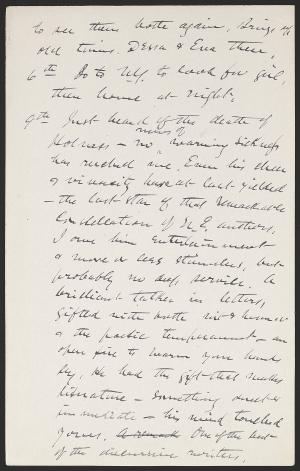 to see them both again, brings up
old times. Dessa & Eva there,
6th Go to N.Y. to look for girl,
then home at night.
9th Just heard of the death of
Holmes - no news of warning sickness
has reached me. Even his cheer
& vivacity have at last yielded
- the last star of that remarkable
constellation of N.E. authors.
I owe him entertainment
& more or less stimulus, but
probably no deep service. A
brilliant talker in letters,
gifted with both wit & humor
& the poetic temperament - an
open fire to warm your hands
by. He had the gift that makes
literature - something direct
intimate - his mind touched
yours. A remark One of the best
of the discursive writers,